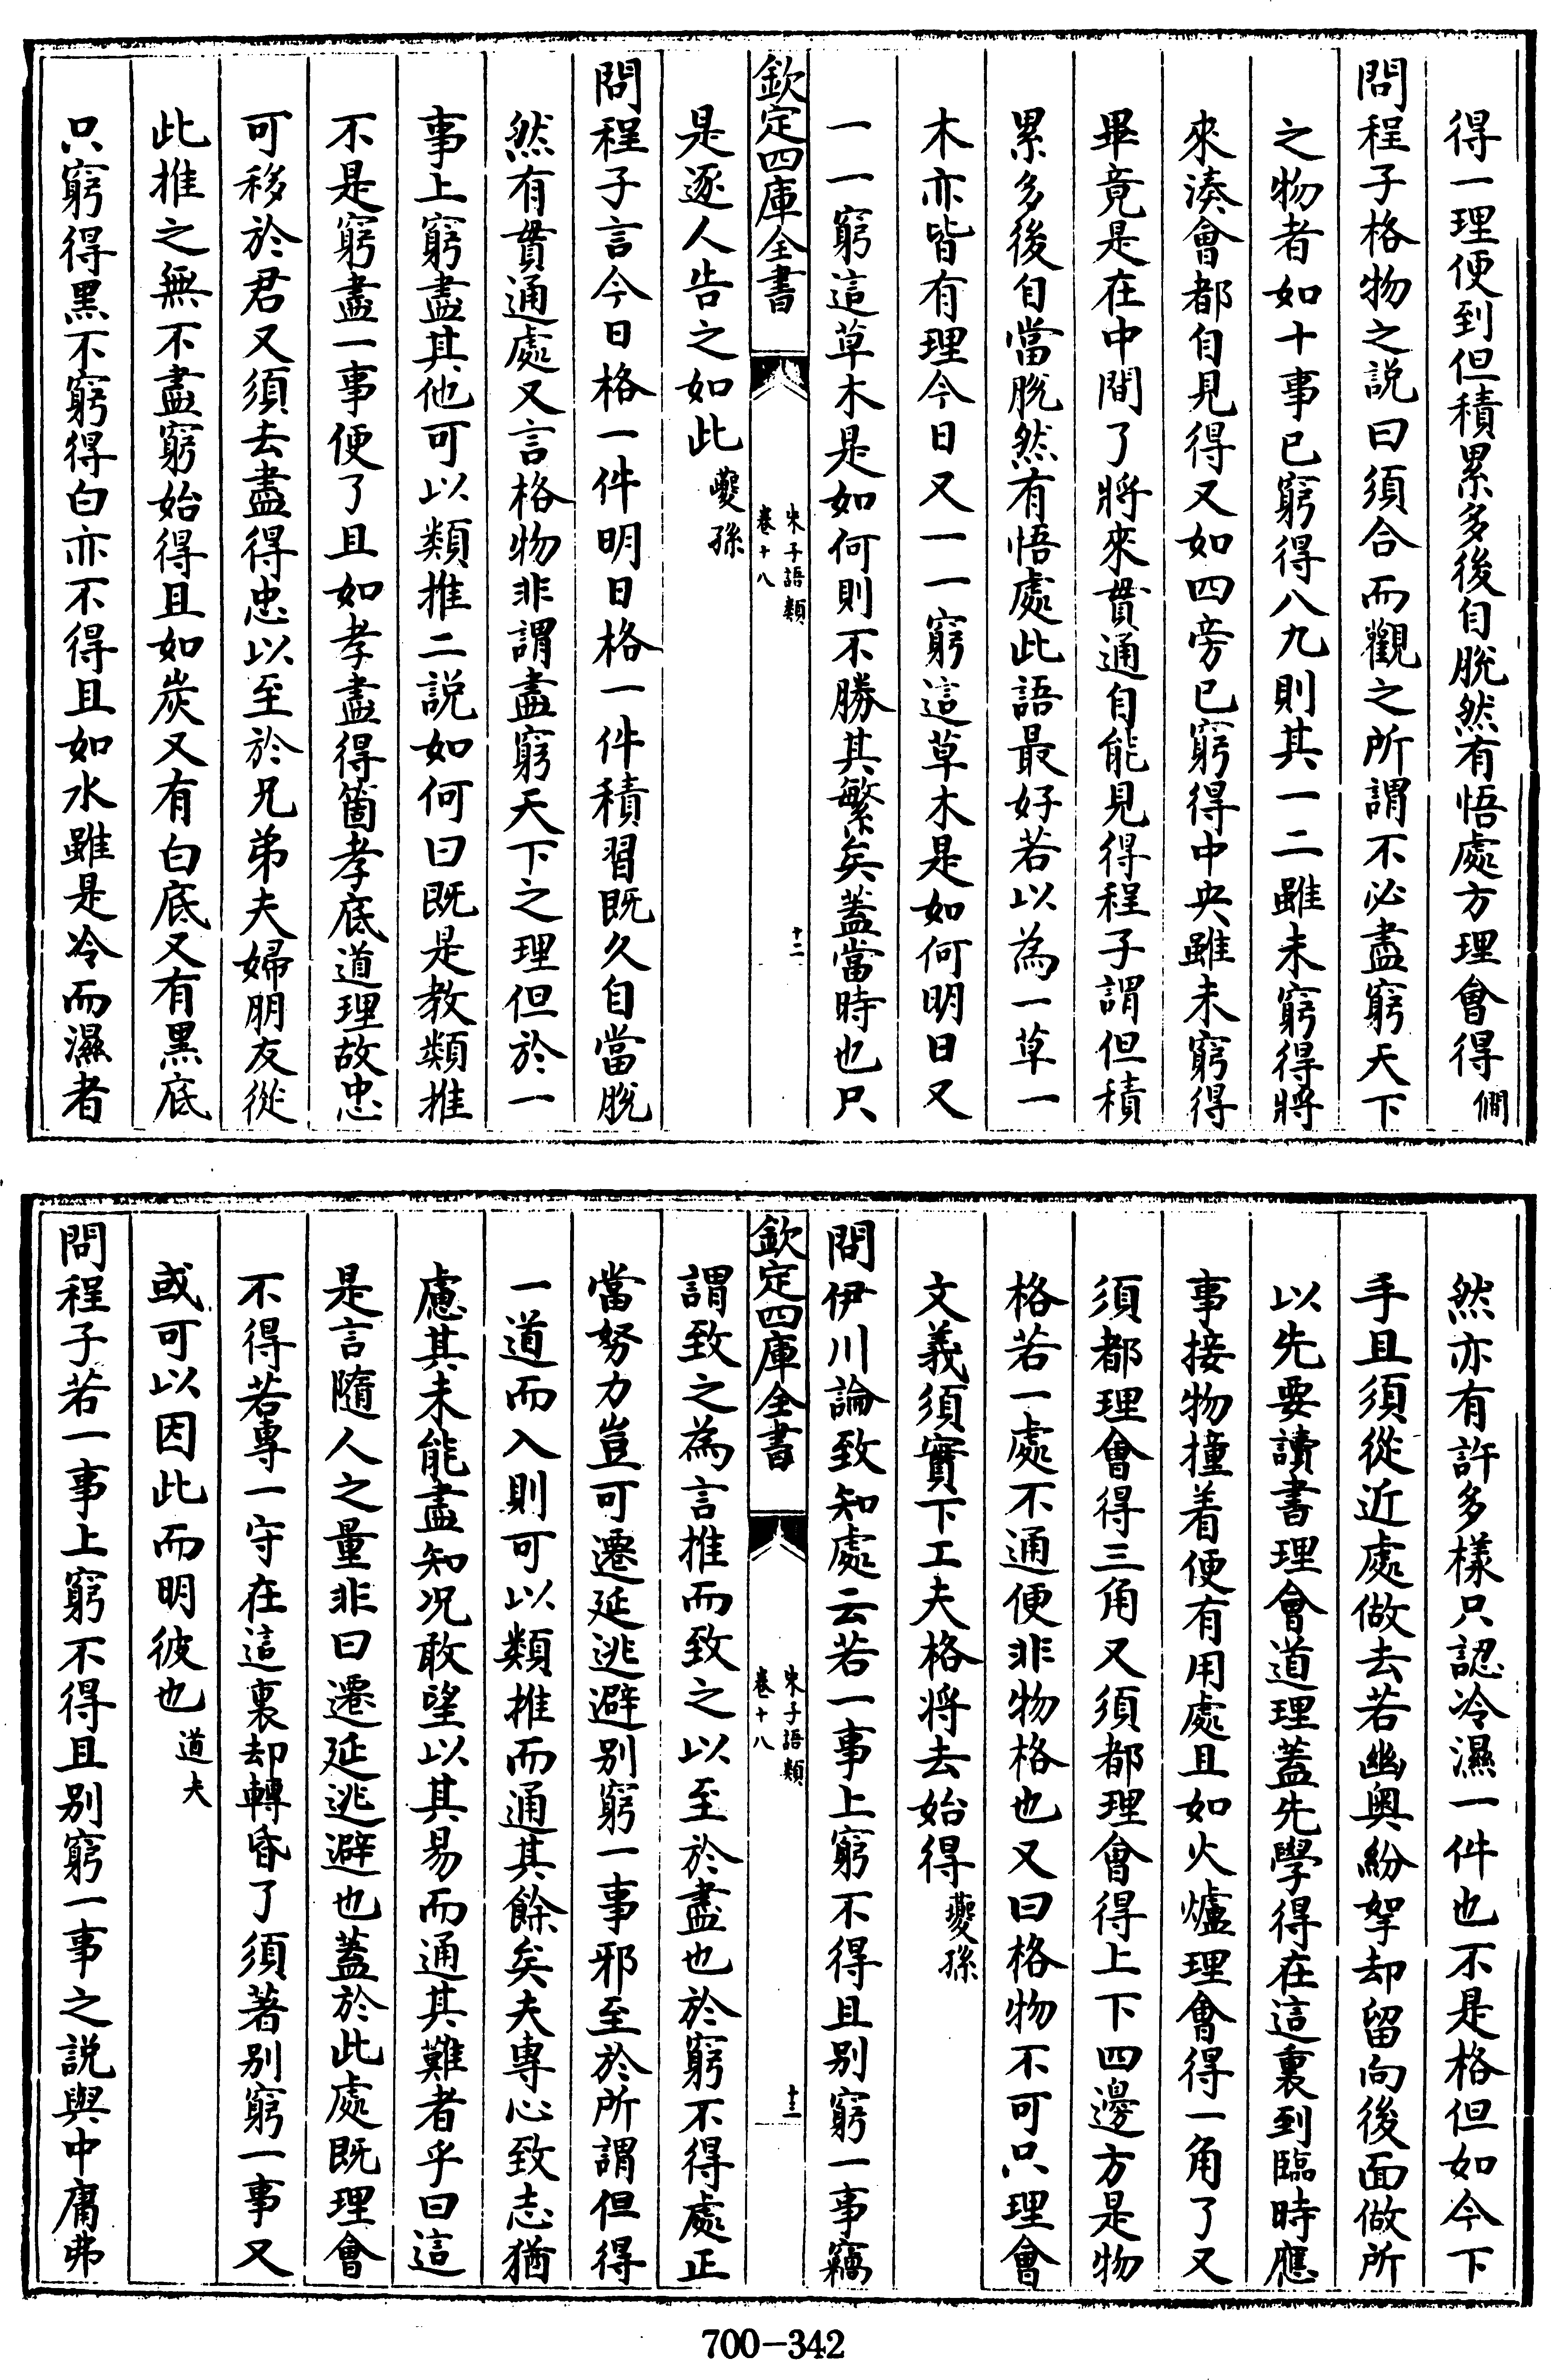 得一理便到但積累多後自脫然有悟處方理會得 僩
問程子格物之說曰須合而觀之所謂不必盡窮天下
之物者如十事已窮得八九則其一二雖未窮得將
來湊會都自見得又如四旁已窮得中央雖未窮得
畢竟是在中間了將來貫通自能見得程子謂但積
累多後自當脫然有悟處此語最好若以為一草一
木亦皆有理今日又一一窮這草木是如何明日又
一一窮這草木是如何則不勝其繁矣蓋當時也只
欽定四庫全書
朱子語類
卷十八
十二
是逐人告之如此 夔孫
問程子言今日格一件明日格一件積習既久自當脫
然有貫通處又言格物非謂盡窮天下之理但於一
事上窮盡其他可以類推二說如何曰既是教類推
不是窮盡一事便了且如孝盡得箇孝底道理故忠
可移於君又須去盡得忠以至於兄弟夫婦朋友從
此推之無不盡窮始得且如炭又有白底又有黑底
只窮得黑不窮得白亦不得且如水雖是冷而濕者
然亦有許多樣只認冷濕一件也不是格但如今下
手且須從近處做去若幽奧紛拏却留向後面做所
以先要讀書理會道理蓋先學得在這裏到臨時應
事接物撞着便有用處且如火爐理會得一角了又
須都理會得三角又須都理會得上下四邊方是物
格若一處不通便非物格也又曰格物不可只理會
文義須實下工夫格將去始得 夔孫
問伊川論致知處云若一事上窮不得且别窮一事竊
欽定四庫全書
朱子語類
卷十八
十三
謂致之為言推而致之以至於盡也於窮不得處正
當努力豈可遷延逃避别窮一事邪至於所謂但得
一道而入則可以類推而通其餘矣夫專心致志猶
慮其未能盡知况敢望以其易而通其難者乎曰這
是言隨人之量非曰遷延逃避也蓋於此處既理會
不得若專一守在這裏却轉昏了須著别窮一事又
或可以因此而明彼也 道夫
問程子若一事上窮不得且别窮一事之說與中庸弗
700-342